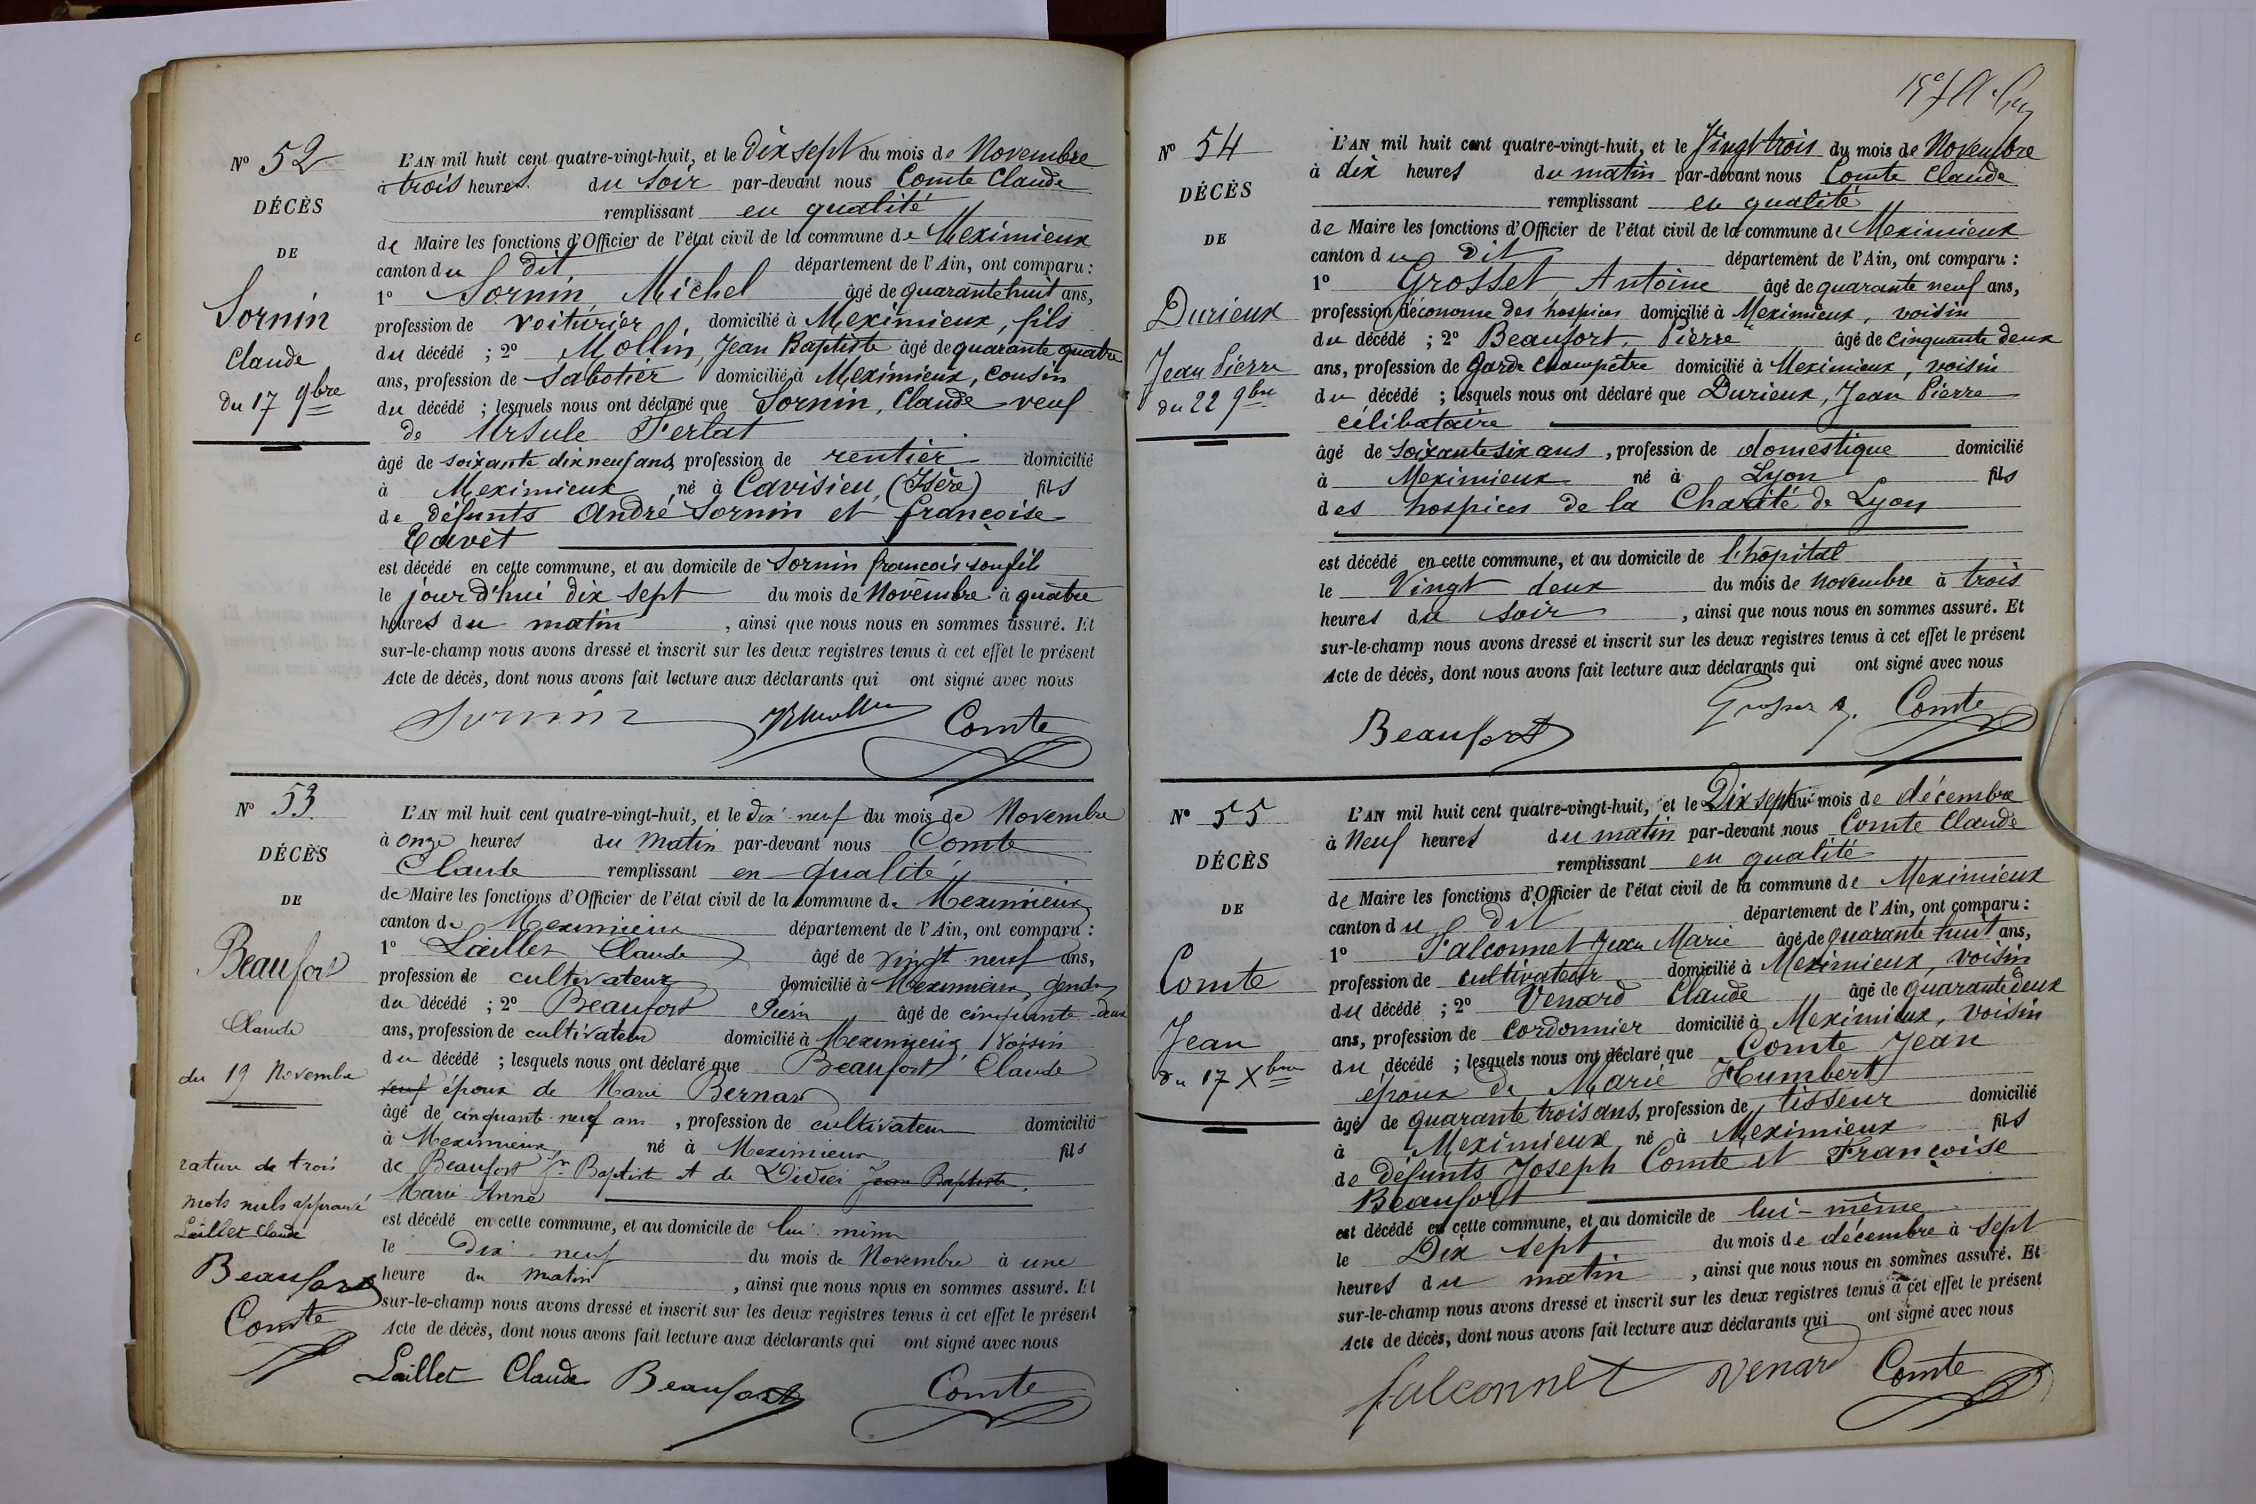 Nº 52
DÉCÈS
DE
Sornin
Claude
du 17 9bre
L'AN mil huit cent quatre-vingt-huit, et le dix sept du mois de Novembre
à trois heures du soir par-devant nous Comte Claude
remplissant en qualité
de Maire les fonctions d'Officier de l'état civil de la commune de Meximieux
canton du dit département de l'Ain, ont comparu :
1º Sornin, Michel âgé de quarante huit ans,
profession de voiturier domicilié à Meximieux, fils
du décédé ; 2º Mollin, Jean Baptiste âgé de quarante quatre
ans, profession de Sabotier domicilié à Meximieux, cousin
du décédé ; lesquels nous ont déclaré que Sornin, Claude veuf
de Ursule Ferlat
âgé de soixante dix neuf ans, profession de rentier domicilié
à Meximieux né à Cavisieu, (Isère) fils
de défunts André Sornin et françoise
est décédé en cette commune, et au domicile de Sornin francois son fils
le jourd'hui dix sept du mois de Novembre à quatre
heures du matin , ainsi que nous nous en sommes assuré. Et
sur-le-champ nous avons dressé et inscrit sur les deux registres tenus à cet effet le présent
Acte de décès, dont nous avons fait lecture aux déclarants qui ont signé avec nous
Sornin Comte
Nº 53
DÉCÈS
DE
Beaufort
Claude
du 19 Novembre
rature de trois
mots nuls approuvé
Laillet Claude
Beaufort
Comte
L'AN mil huit cent quatre-vingt-huit, et le dix neuf du mois de Novembre
à onze heures du matin par-devant nous Comte
Claude remplissant en qualité
de Maire les fonctions d'Officier de l'état civil de la commune de Meximieux
canton de Meximieux département de l'Ain, ont comparu :
1º Laillet Claude âgé de vingt neuf ans,
profession de cultivateur domicilié à Meximieux, gendre
du décédé ; 2º Beaufort Pierre âgé de cinquante deux
ans, profession de cultivateur domicilié à Meximieux, voisin
du décédé ; lesquels nous ont déclaré que Beaufort Claude
veuf époux de Marie Bernard
âgé de cinquante neuf ans , profession de cultivateur domicilié
à Meximieux né à Meximieux fils
de Beaufort Jn Baptiste et de Didier Jean Baptiste
Marie Anne
est décédé en cette commune, et au domicile de lui même
le Dix neuf du mois de Novembre à une
heure du matin , ainsi que nous nous en sommes assuré. Et
sur-le-champ nous avons dressé et inscrit sur les deux registres tenus à cet effet le présent
Acte de décès, dont nous avons fait lecture aux déclarants qui ont signé avec nous
Laillet Claude Beaufort Comte
Nº 54
DÉCÈS
DE
Durieux
Jean Pierre
du 22 9bre
L'AN mil huit cent quatre-vingt-huit, et le Vingt trois du mois de Novembre
à dix heures du matin par-devant nous Comte Claude
remplissant en qualité
de Maire les fonctions d'Officier de l'état civil de la commune de Meximieux
canton du dit département de l'Ain, ont comparu :
1º Grosset, Antoine âgé de quarante neuf ans,
profession d'économe des hospices domicilié à Meximieux, voisin
du décédé ; 2º Beaufort, Pierre âgé de cinquante deux
ans, profession de Garde Champêtre domicilié à Meximieux, voisin
du décédé ; lesquels nous ont déclaré que Durieux, Jean Pierre
célibataire
âgé de soixante six ans , profession de domestique domicilié
à Meximieux né à Lyon fils
des hospices de la Charité de Lyon
est décédé en cette commune, et au domicile de l'hôpital
le Vingt deux du mois de novembre à trois
heures du soir , ainsi que nous nous en sommes assuré. Et
sur-le-champ nous avons dressé et inscrit sur les deux registres tenus à cet effet le présent
Acte de décès, dont nous avons fait lecture aux déclarants qui ont signé avec nous
Beaufort Comte
Nº 55
DÉCÈS
DE
Comte
Jean
du 17 Xbre
L'AN mil huit cent quatre-vingt-huit, et le Dix sept du mois de décembre
à Neuf heures du matin par-devant nous Comte Claude
remplissant en qualité
de Maire les fonctions d'Officier de l'état civil de la commune de Meximieux
canton du dit département de l'Ain, ont comparu :
1º Falconnet Jean Marie âgé de quarante huit ans,
profession de cultivateur domicilié à Meximieux, voisin
du décédé ; 2º Venard Claude âgé de quarante deux
ans, profession de Cordonnier domicilié à Meximieux, voisin
du décédé ; lesquels nous ont déclaré que Comte Jean
époux de Marie Humbert
âgé de quarante trois ans, profession de tisseur domicilié
à Meximieux né à Meximieux fils
de défunts Joseph Comte et Françoise
Beaufort
est décédé en cette commune, et au domicile de lui-même
le Dix sept du mois de décembre à sept
heures du matin , ainsi que nous nous en sommes assuré. Et
sur-le-champ nous avons dressé et inscrit sur les deux registres tenus à cet effet le présent
Acte de décès, dont nous avons fait lecture aux déclarants qui ont signé avec nous
falconnet Venard Comte